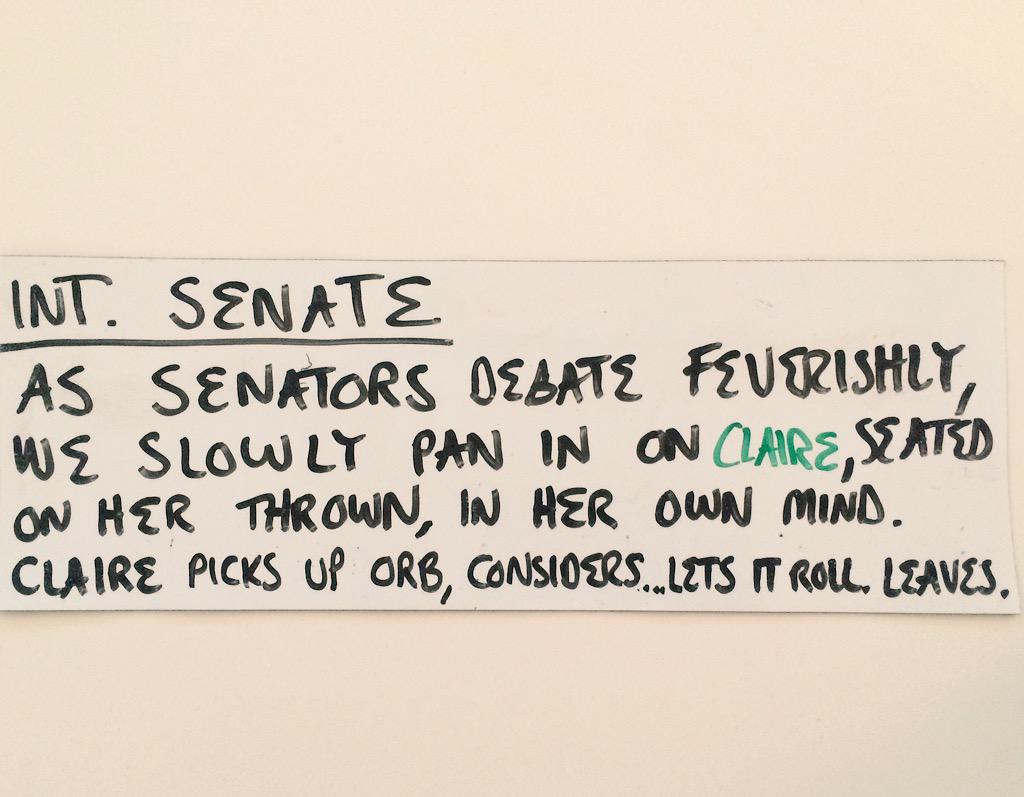 INT. SENATE
AS SENATORS DEBATE FEVERISHLY,
WE SLOWLY PAN IN ON CLAIRE, SEATED
ON HER THROWN, IN HER OWN MIND.
CLAIRE PICKS UP ORB, CONSIDERS...LETS IT ROLL. LEAVES.